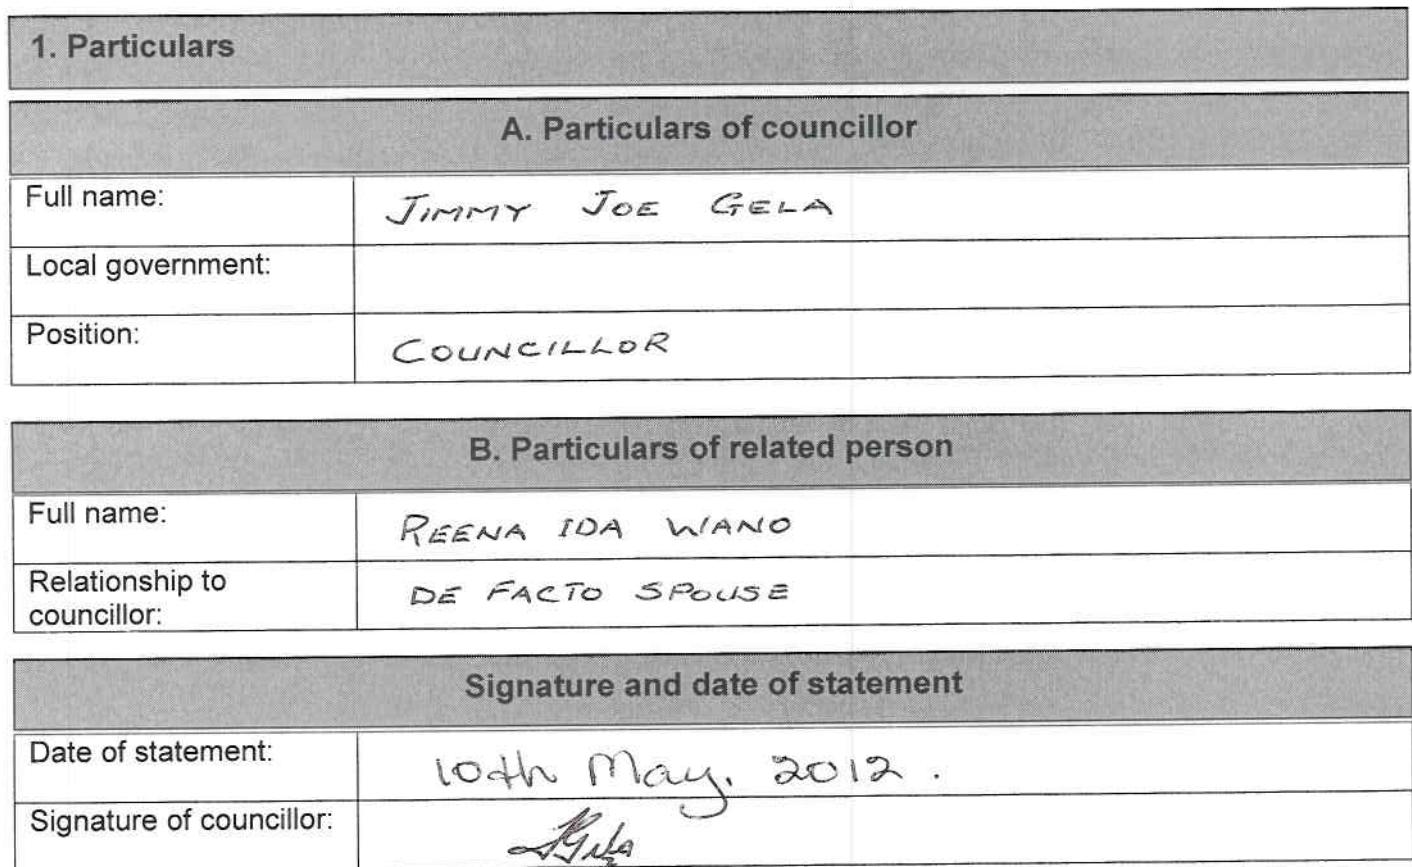 1. Particulars
A. Particulars of councillor
Full name: JIMMY JOE GELA
Local government:
Position: COUNCILLOR
B. Particulars of related person
Full name: REENA IDA WANO
Relationship to
councillor: DE FACTO SPOUSE
Signature and date of statement
Date of statement: 10th May, 2012.
Signature of councillor: JGela